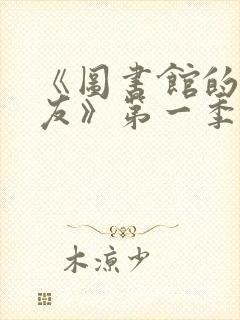 《圖書館的
友》第一季
木涼少